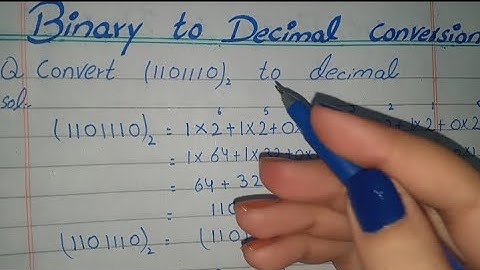 Binary to Decimal conversion
Q Convert (1101110)₂ to decimal
Sol:.
(1101110)₂ = 1×2⁶+1×2⁵+0× ²+1×2¹+0×2
= 1×64+1×32+0×
= 64+32
= 110
(1101110)₂ = (110